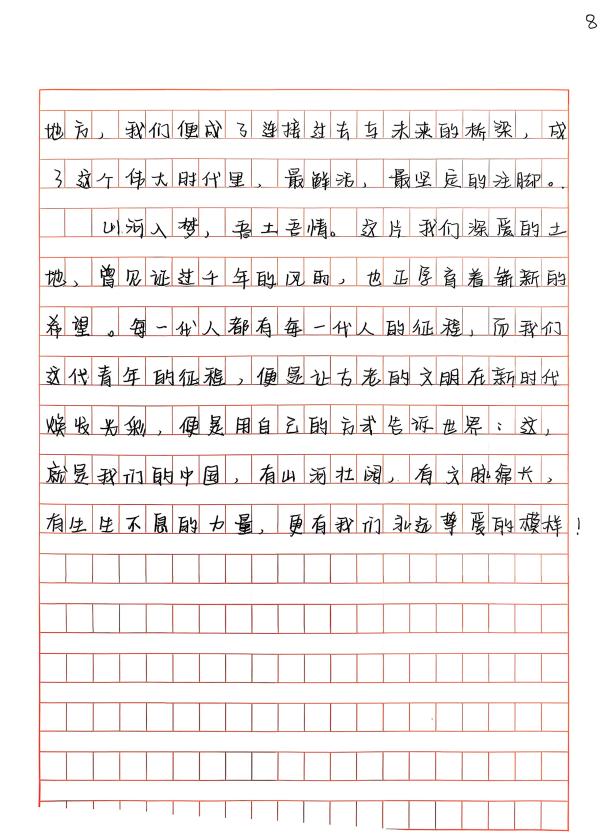 8
地方，我们便成了连接过去与未来的桥梁，成
了这个伟大时代里，最鲜活，最坚定的注脚。
山河入梦，吾土吾情。这片我们深爱的土
地，曾见证过千年的风雨，也正孕育着崭新的
希望。每一代人都有每一代人的征程，而我们
这代青年的征程，便是让古老的文明在新时代
焕发光彩，便是用自己的方式告诉世界：这，
就是我们的中国，有山河壮阔，有文脉绵长，
有生生不息的力量，更有我们永远挚爱的模样！